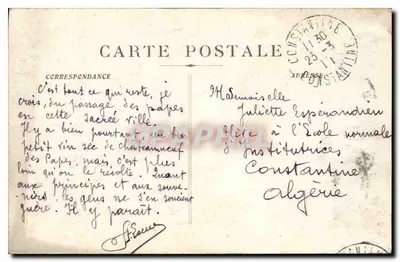 CARTE POSTALE
CORRESPONDANCE
ADRESSE
CONSTANTINE
11 30
23 - 3
11
CONSTANTINE
C'est tout ce qui reste, je
crois, du passage des papes
en cette sacrée ville.
Il y a bien pourtant, le bon
petit vin sec de
des Papes, mais, c'est plus
loin qu'on le récolte. Quant
aux principes et aux souve-
nirs, les gens ne s'en soucient
guère. Il y paraît.
Mademoiselle
Juliette Espérandieu
Élève à l'École normale
d'Institutrices
Constantine
Algérie